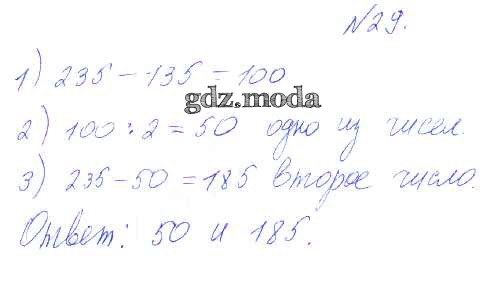 №29.
1) 235 - 135 = 100
gdz.moda
2) 100 : 2 = 50 одно из чисел.
3) 235 - 50 = 185 второе число.
Ответ: 50 и 185.